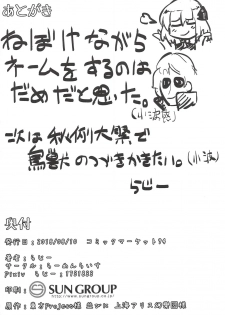 あとがき
ねぼけながら
ネームをするのは
だめだと思った。
(小波感)
次は秋例大祭で
無獣のつづきかきたい。(小波)
らじー
奥付
発行日：2018/08/10 コミックマーケット94
著者：らじー
サークル：らーめんらいす
印刷： SUN GROUP
www.sungroup.co.jp
原作：東方Project様 並びに 上海アリス幻樂団様